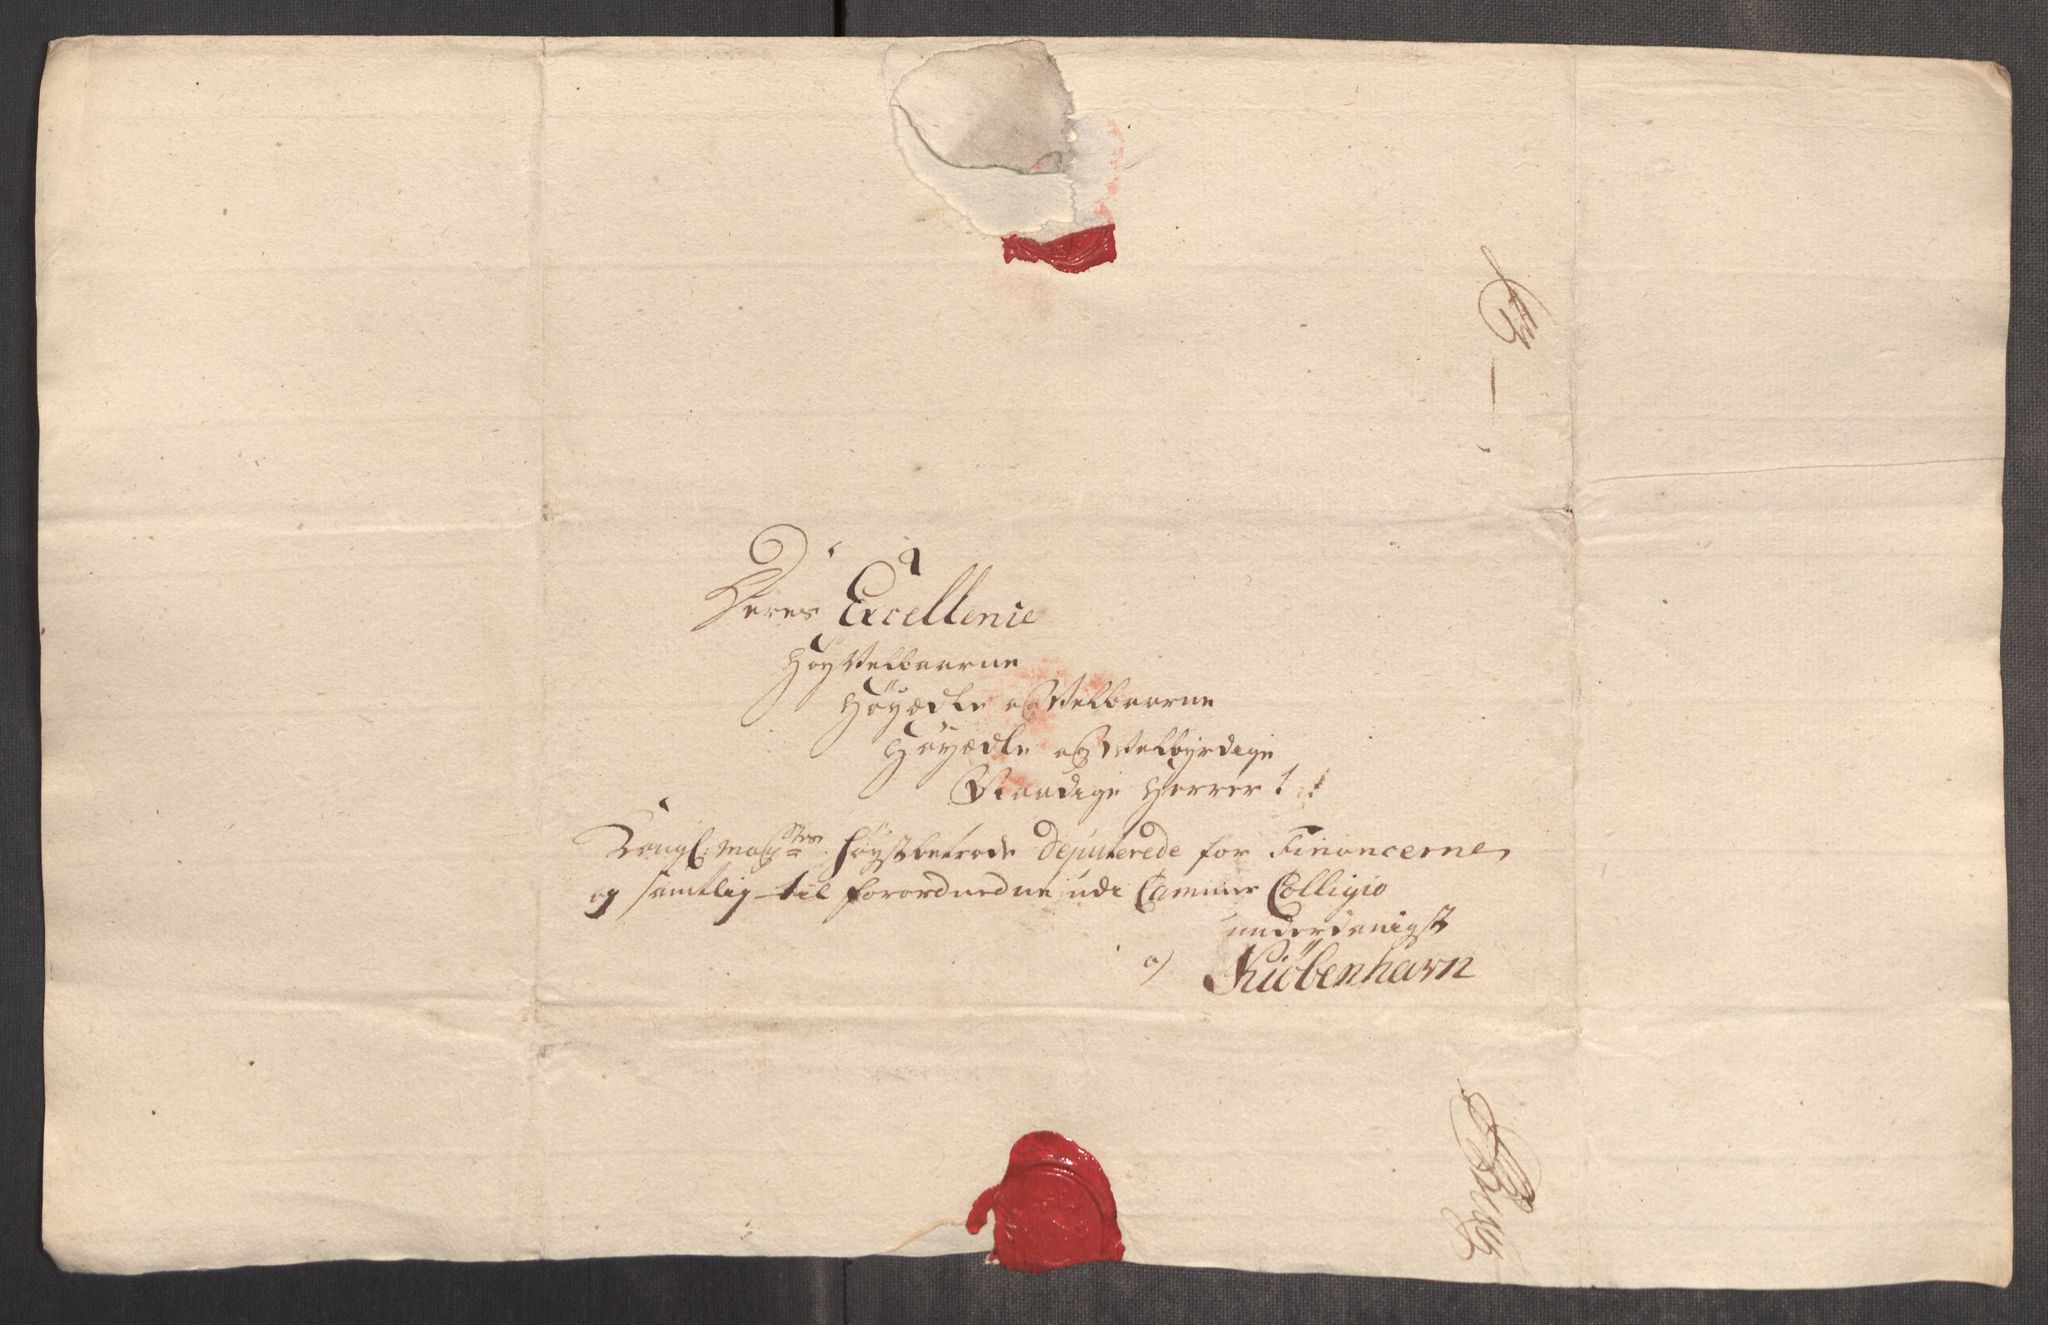 Deres Excellence
HöyVelbaarne
Höyædle og Velbaarne
Höyædle og Velbyrdige
Naadige Herrer!
Kongl: May:sts höystbetroede Deputerede for Financerne
og samtlig til forordnedne udi Cammer Collegio
underdanigst
a/ Kiöbenhavn